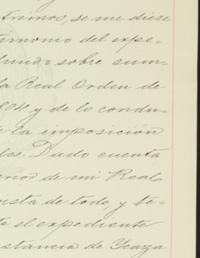 trimos, se me diese
monio del espe-
minar sobre sum-
la Real Orden de
804, y de lo condu-
e la imposición
los. Dado cuenta
nos de mi Real
ista de todo, y te-
te el expediente
stancia de Ycaza